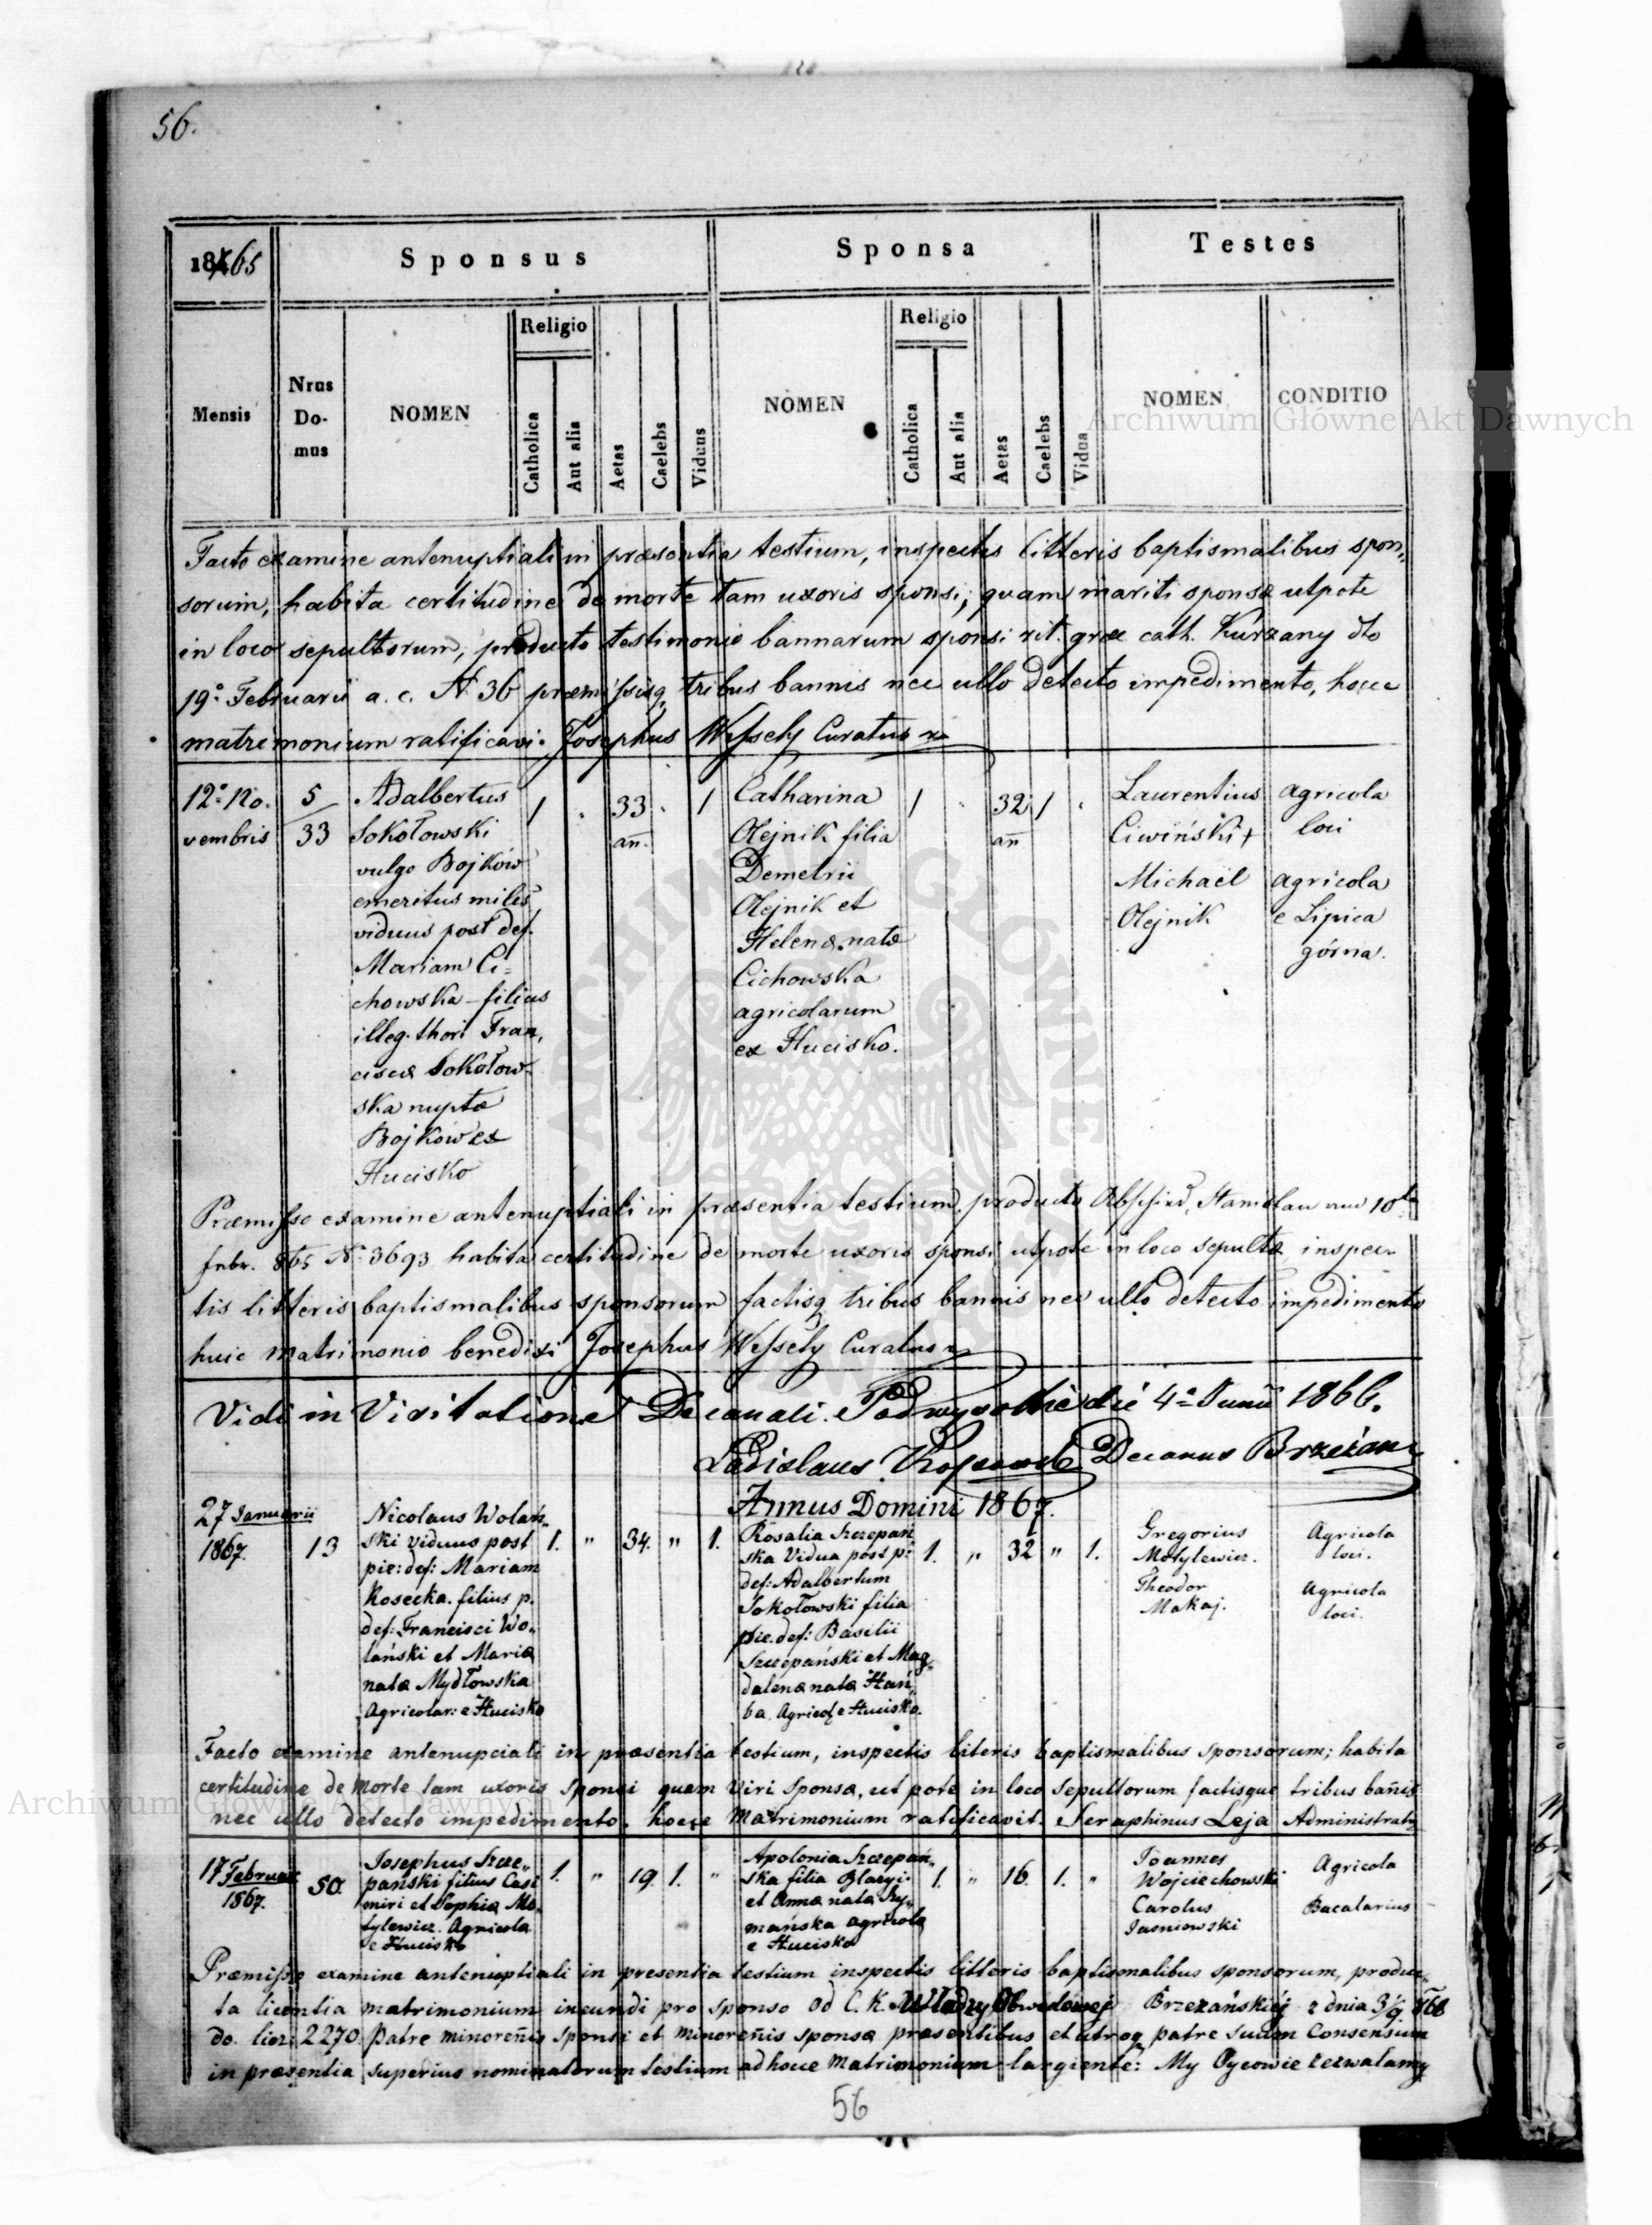 56.
1865
Sponsus
Sponsa
Testes
Mensis
Nrus Domus
NOMEN
Religio
Catholica
Aut alia
Aetas
Caelebs
Viduus
NOMEN
Religio
Catholica
Aut alia
Aetas
Caelebs
Vidua
NOMEN
CONDITIO
Archiwum Główne Akt Dawnych
Facto examine antenuptiali in præsentia testium, inspectis litteris baptismalibus spon,,
sorum, habita certitudine de morte tam uxoris sponsi, quam mariti sponsæ utpote
in loco sepultorum, producto testimonio bannarum sponsi rit. græc cath. Kurzany dto
19º Februarii a. c. N 36 præmissisq tribus bannis nec ullo detecto impedimento, hocce
matrimonium ratificavi. Josephus Wessely Curatus
12º No.
vembris
5
33
Adalbertus
Sokołowski
vulgo Bojków
emeritus miles
viduus post def.
Mariam Ci=
chowska - filius
illeg. thori Fran,
ciscæ Sokołow-
ska nuptæ
Bojków ex
Hucisko
1 . 33 an. . 1
Catharina
Olejnik filia
Demetrii
Olejnik et
Helenæ natæ
Cichowska
agricolarum
ex Hucisko.
1 . 32 an 1 .
Laurentius
Ciwiński +
Michaël
Olejnik
agricola
loci
agricola
e Lipica
górna.
Præmisso examine antenuptiali in præsentia testium, producto Abschied, Stanislau 10
865 N. 3693 habita certitudine de morte uxoris sponsi utpote in loco sepultæ, inspec-
tis litteris baptismalibus sponsorum factisq tribus bannis nec ullo detecto impedimento
huic matrimonio benedixi Josephus Wessely Curatus
Vidi in Visitatione Decanali Podwysokie die 4ª Junii 1866.
Ladislaus Decanus Brzeżan
Annus Domini 1867.
27 Januarii
1867.
13
Nicolaus Wolań-
ski viduus post
pie: def: Mariam
Kosecka. filius p.
def: Francisci Wo,,
lański et Mariæ
natæ Mydłowska
Agricolar: e Hucisko
1. " 34. " 1.
Rosalia Szczepań
ska Vidua post p:
def: Adalbertum
Sokołowski filia
pie. def: Basilii
Szczepański et Mag,,
dalenæ natæ Hań,,
ba Agricol e Hucisko.
1. " 32 " 1.
Gregorius
Motylewicz.
Theodor
Makaj.
Agricola
loci.
Agricola
loci.
Facto examine antenupciali in præsentia testium, inspectis literis baptismalibus sponsorum; habita
certitudine de morte tam uxoris sponsi quam viri sponsæ, ut pote in loco sepultorum factisque tribus bañis
nec ullo detecto impedimento. hocce Matrimonium ratificavit. Seraphinus Leja Administrator
Archiwum Główne Akt Dawnych
17 Februar
1867.
50.
Josephus Szcze,,
pański filius Casi
miri et Sophiæ Mo,,
tylewicz. Agricola
e Hucisko
1. " 19. 1. "
Apolonia Szczepań,,
ska filia Błazyi
et Annæ nata Szy,,
mańska agricola
e Hucisko
1. " 16. 1. "
Joannes
Wojciechowski
Carolus
Jasniowski
Agricola
Bacalarius
Præmisso examine antenuptiali in presentia testium inspectis litteris baptismalibus sponsorum, produc,,
ta licentia matrimonium ineundi pro sponso od C. K. Władzy Obwodowej Brzezańskiej z dnia 3/9
do. licz. 2270 Patre minoreñis sponsi et minoreñis sponsæ præsentibus et utroq patre suum Consensum
in præsentia superius nominatorum testium ad hocce Matrimonium largiente: My Oycowie zezwalamy
56